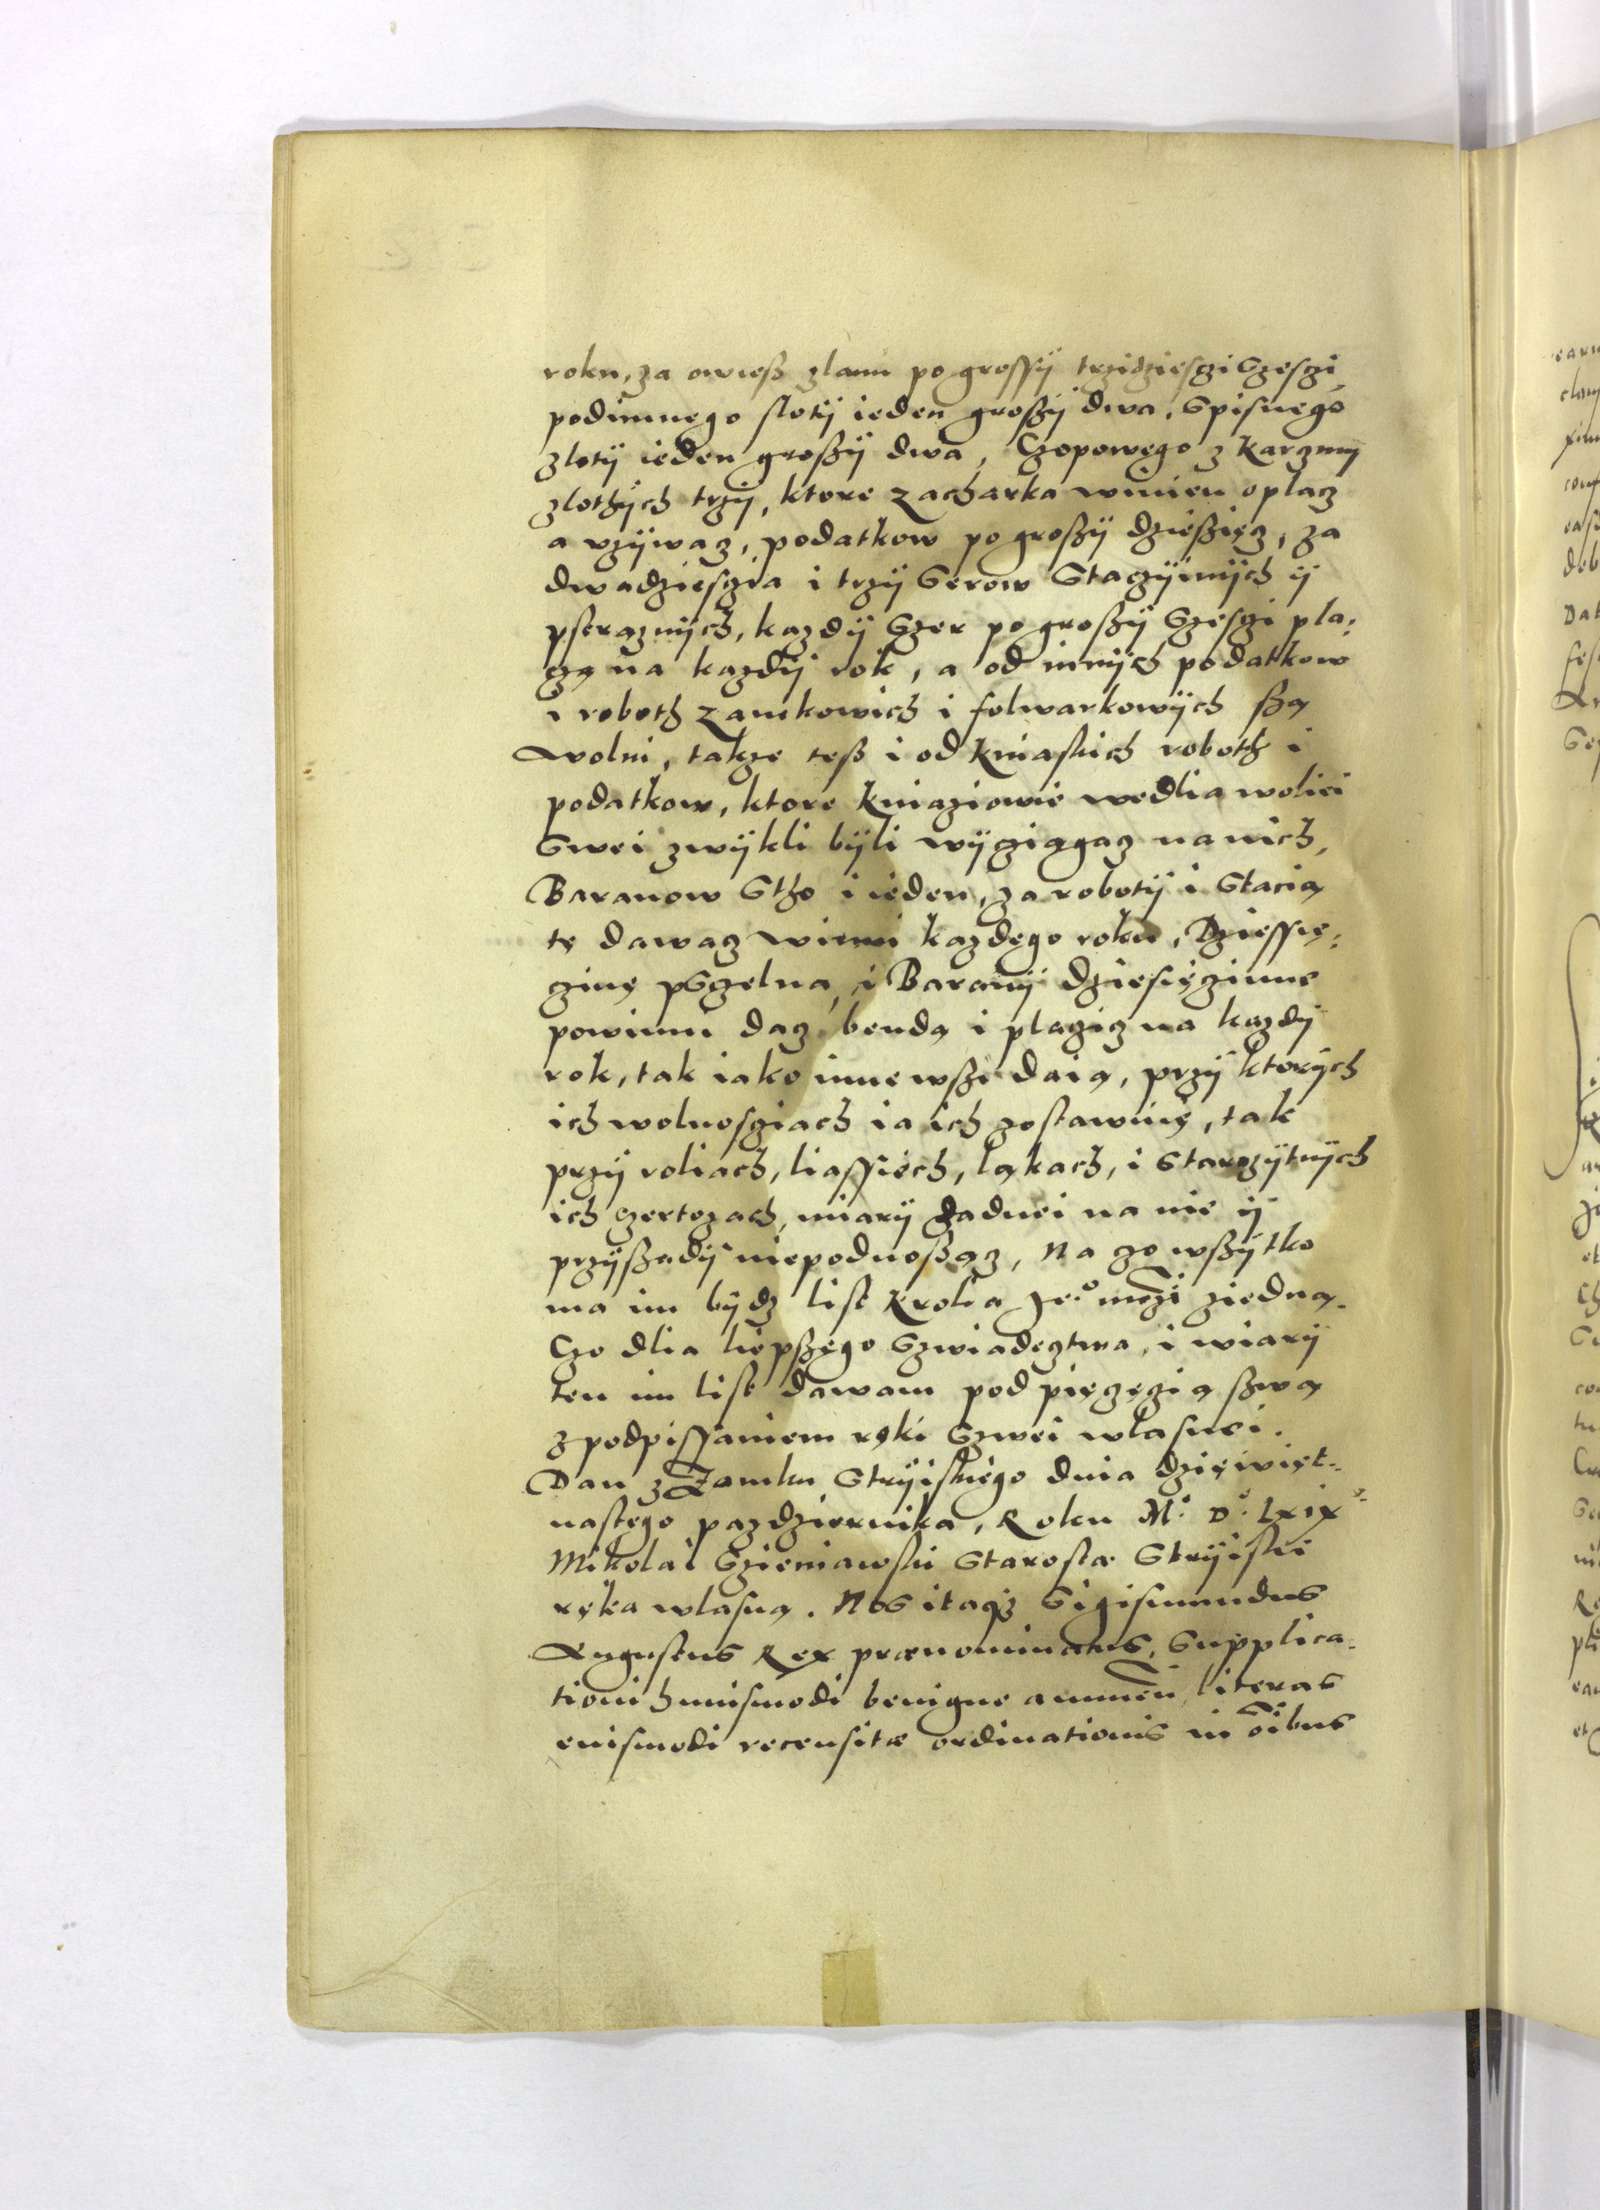 roku, za owieß zlanu po grossÿ trzidziesczi Szesczi
podimnego słotÿ ieden großÿ dwa, Spisnego
złotÿ ieden großÿ dwa, Czopowego z Karczmÿ
złothÿch trzÿ, ktore Zacharka winien oplacz
a vzÿwacz, podatkow po großÿ dzießięcz, za
dwadziesczia i trzÿ Serow StaczÿinÿcH ÿ
pstraznÿch, kazdÿ Szer po großÿ Szesczi pla:
czą na kazdÿ rok, a od innÿch podatkow
i roboth Zamkowich i folwarkowÿch ßą
wolni, takze teß i od Kniaskich roboth i
podatkow, ktore Kniaziowie wedlia woliei
Swei zwÿkli bÿli wÿcziągacz na nich,
Baranow Stho i ieden, za robotÿ i Stacią
tę dawacz winni kazdego roku, Dziessię:
czinę pSzczelna, i Baranÿ dziesięczinne
powinni dacz bendą i placzicz na kazdÿ
rok, tak iako inne wßi daią, przÿ ktorÿch
ich wolnosciach ia ich zostawuię, tak
przÿ roliach, liassiech, ląkach, i Starozÿtnÿch
ich czertezach, miarÿ zadnei na nie ÿ
przÿßadÿ niepodnoßącz, Na czo wßÿtko
ma im bÿdz list Krolia Je.º mczi ziedną.
Czo dlia liepßego Szwiadecztwa, i wiarÿ
ten im list dawam pod pięczęczią ßwą
z podpissaniem ręki Szwei własnei.
Dan z Zamku Strÿiskiego dnia dziewięt=
nastego pazdziernika, Roku M.º D.º Lxixº.
Mikolai Szieniawski Starosta Strÿiski
ręka własną. Nos itaqz Sigismundus
Augustus Rex prænominatus, Supplica:
tioni huiusmodi benigne annuen̄, literas
euismodi recensitæ ordinationis in o͞ibus